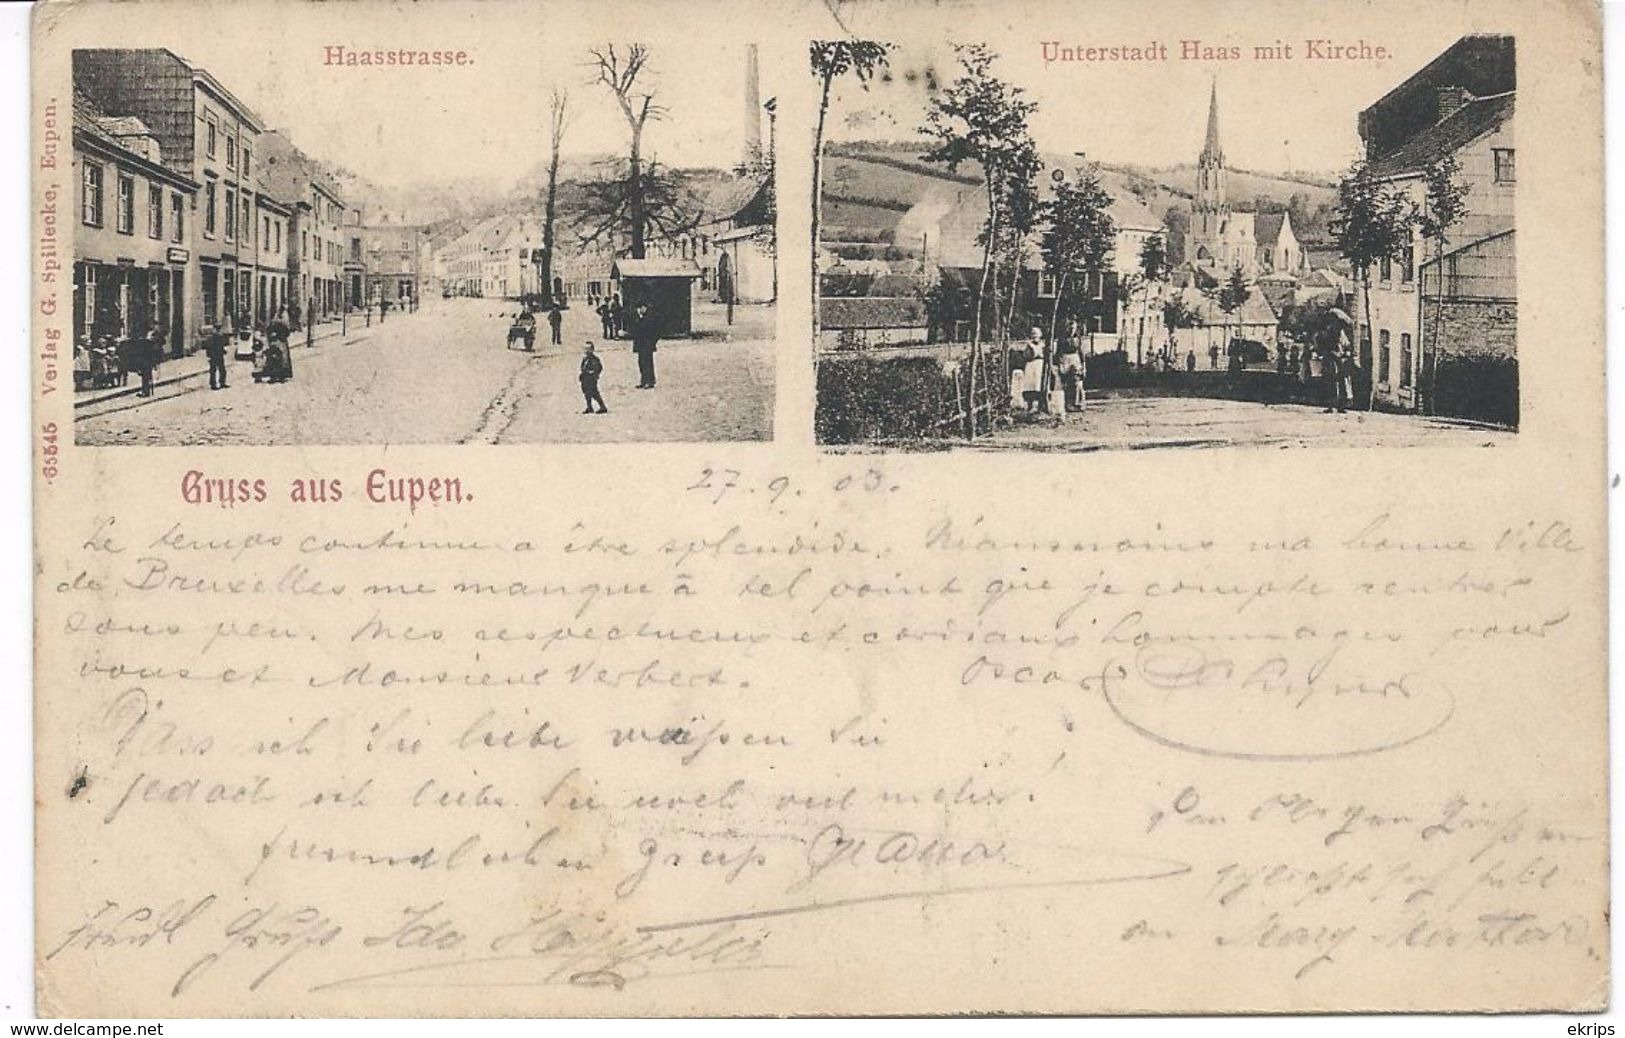 Haasstrasse.
Unterstadt Haas mit Kirche.
65545 Verlag G. Spillecke, Eupen.
Gruss aus Eupen.
27.9.03.
Le temps continue a être splendide. Néansmoins ma bonne Ville
de Bruxelles me manque à tel point que je compte rentrer
sous peu. Mes respectueux et cordiaux hommages pour
vous et Monsieur Verbert. Oscar
Dass ich Sie liebe wißen Sie
jedoch ich liebe Sie noch viel mehr!
freundlichen Gruß
Gruß Ida
www.delcampe.net
ekrips